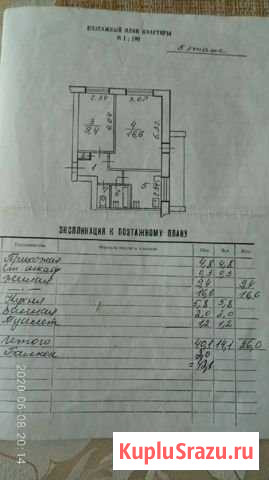 ПОЭТАЖНЫЙ ПЛАН КВАРТИРЫ
М 1 : 100
5 этаж
2.34
3.07
3
9,4
4
16,6
4.04
5.32
1
5
2.34
ЭКСПЛИКАЦИЯ К ПОЭТАЖНОМУ ПЛАНУ
Прихожая 4,8 4,8
0,3 0,3
Жилая 9,4 9,4
16,6 16,6
Кухня 5,8 5,8
Ванная 2,0 2,0
Туалет 1,2 1,2
Итого 40,1 14,1 26,0
Балкон 3,0
2020 06 08 20 14
KupluSrazu.ru